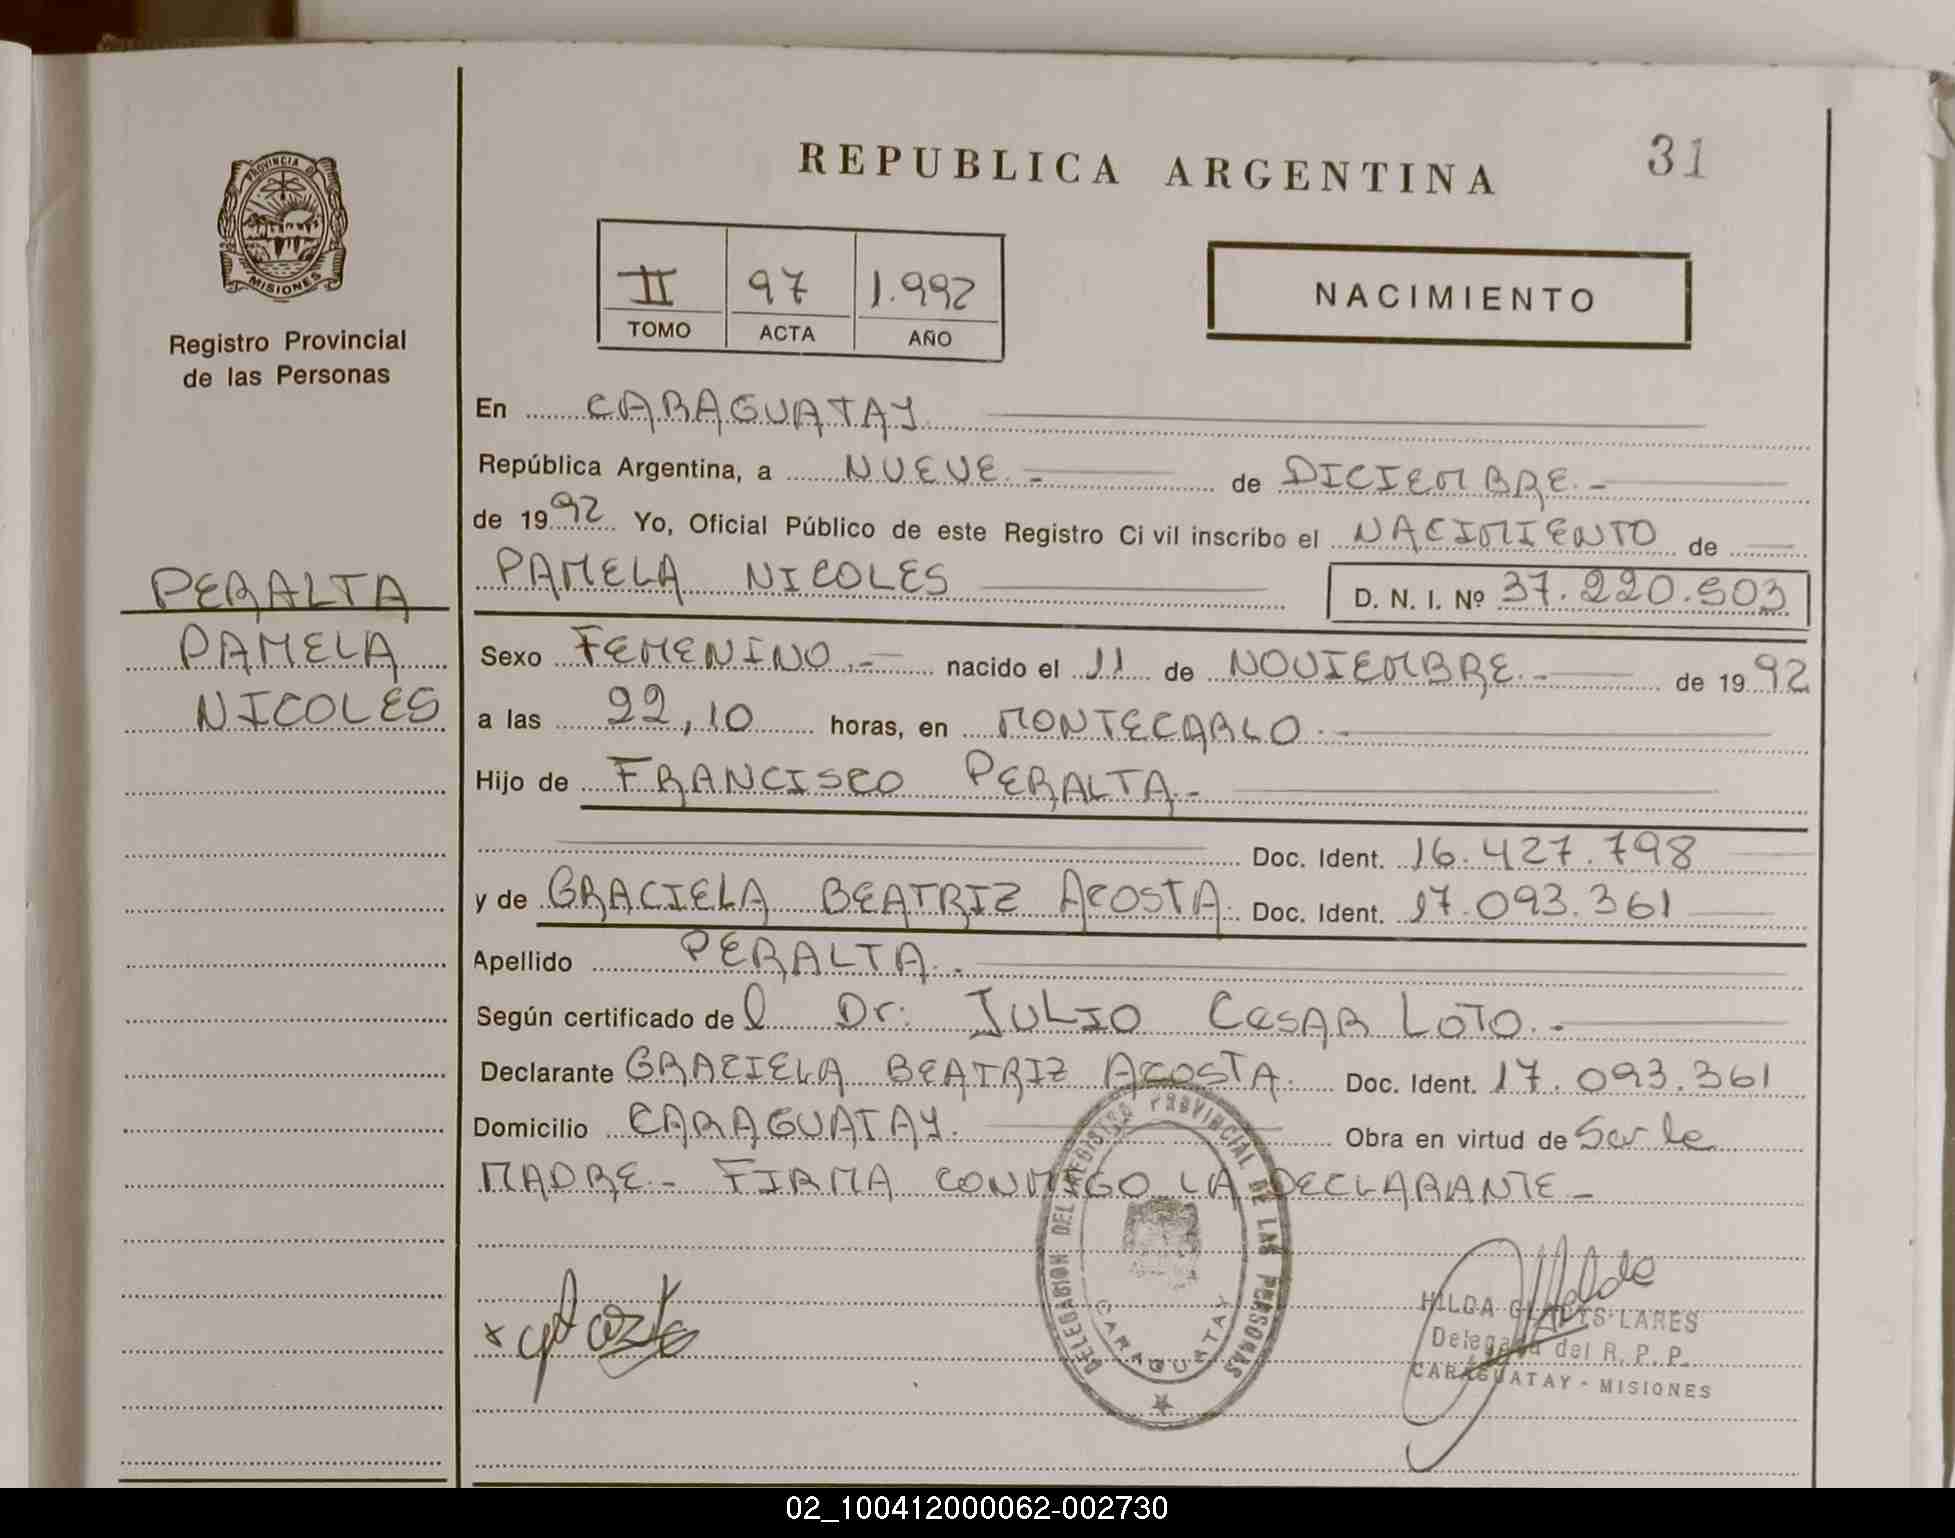 PROVINCIA DE
MISIONES
Registro Provincial
de las Personas
PERALTA
PAMELA
NICOLES
REPUBLICA ARGENTINA
31
II 97 1.992
TOMO ACTA AÑO
NACIMIENTO
En CARAGUATAY
República Argentina, a NUEVE.- de DICIEMBRE.-
de 1992 Yo, Oficial Público de este Registro Civil inscribo el NACIMIENTO de
PAMELA NICOLES D. N. I. Nº 37.220.503
Sexo FEMENINO.- nacido el 11 de NOVIEMBRE.- de 1992
a las 22,10 horas, en MONTECARLO.-
Hijo de FRANCISCO PERALTA.-
Doc. Ident. 16.427.798
y de GRACIELA BEATRIZ ACOSTA. Doc. Ident. 17.093.361
Apellido PERALTA.-
Según certificado del Dr: JULIO CESAR LOTO.-
Declarante GRACIELA BEATRIZ ACOSTA. Doc. Ident. 17.093.361
Domicilio CARAGUATAY. Obra en virtud de Ser la
MADRE.- FIRMA CONMIGO LA DECLARANTE-
DELEGACION DEL REGISTRO PROVINCIAL DE LAS PERSONAS
CARAGUATAY
HILDA GLADYS LARES
Delegada del R. P. P.
CARAGUATAY - MISIONES
02_100412000062-002730